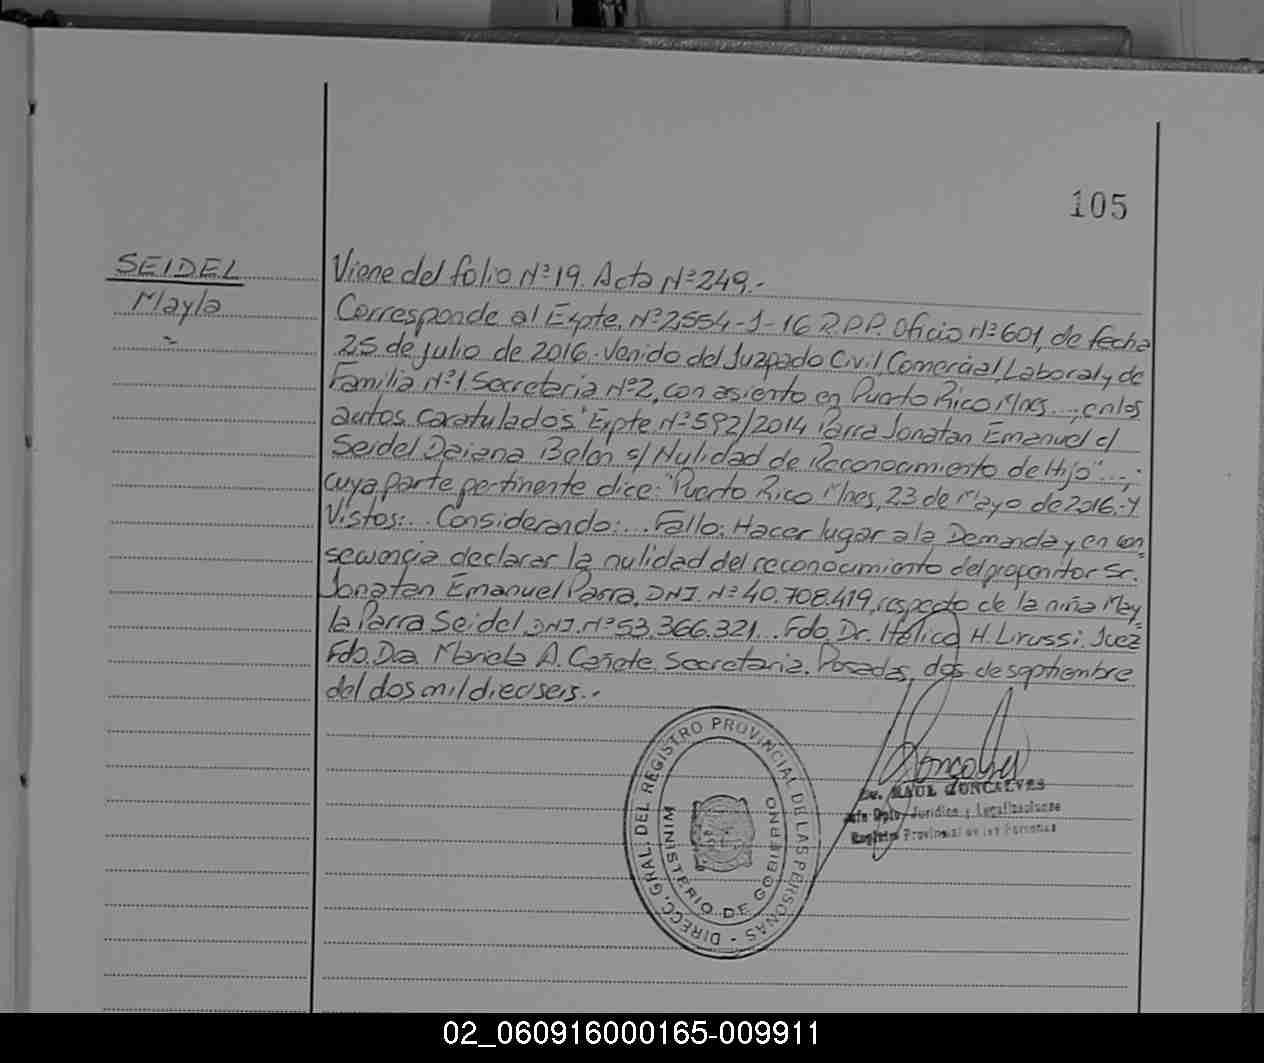 105
SEIDEL
Mayla
Viene del folio Nº 19. Acta Nº 249.-
Corresponde al Expte. Nº 2554-J-16 R.P.P. Oficio Nº 601, de fecha
25 de julio de 2016. Venido del Juzgado Civil, Comercial, Laboral y de
Familia Nº 1. Secretaria Nº 2, con asiento en Puerto Rico Mnes..., en los
autos caratulados "Expte Nº 592/2014 Parra Jonatan Emanuel c/
Seidel Daiana Belen s/ Nulidad de Reconocimiento de Hijo"...;
cuya parte pertinente dice: "Puerto Rico Mnes, 23 de Mayo de 2016.- Y
Vistos:... Considerando:... Fallo: Hacer lugar a la Demanda y en con
secuencia declarar la nulidad del reconocimiento del progenitor Sr.
Jonatan Emanuel Parra, DNI. Nº 40.708.419, respecto de la niña May
la Parra Seidel DNI. Nº 53.366.321... Fdo. Dr. H. Lirussi. Juez
Fdo. Dra Mariela A. Cañete. Secretaria. Posadas, dos de septiembre
del dos mil dieciseis.-
DIRECC. GRAL. DEL REGISTRO PROVINCIAL DE LAS PERSONAS -
MINISTERIO DE GOBIERNO
Dr. RAUL GONCALVES
Jefe Dpto. Jurídico y Legalizaciones
Registro Provincial de las Personas
02_060916000165-009911